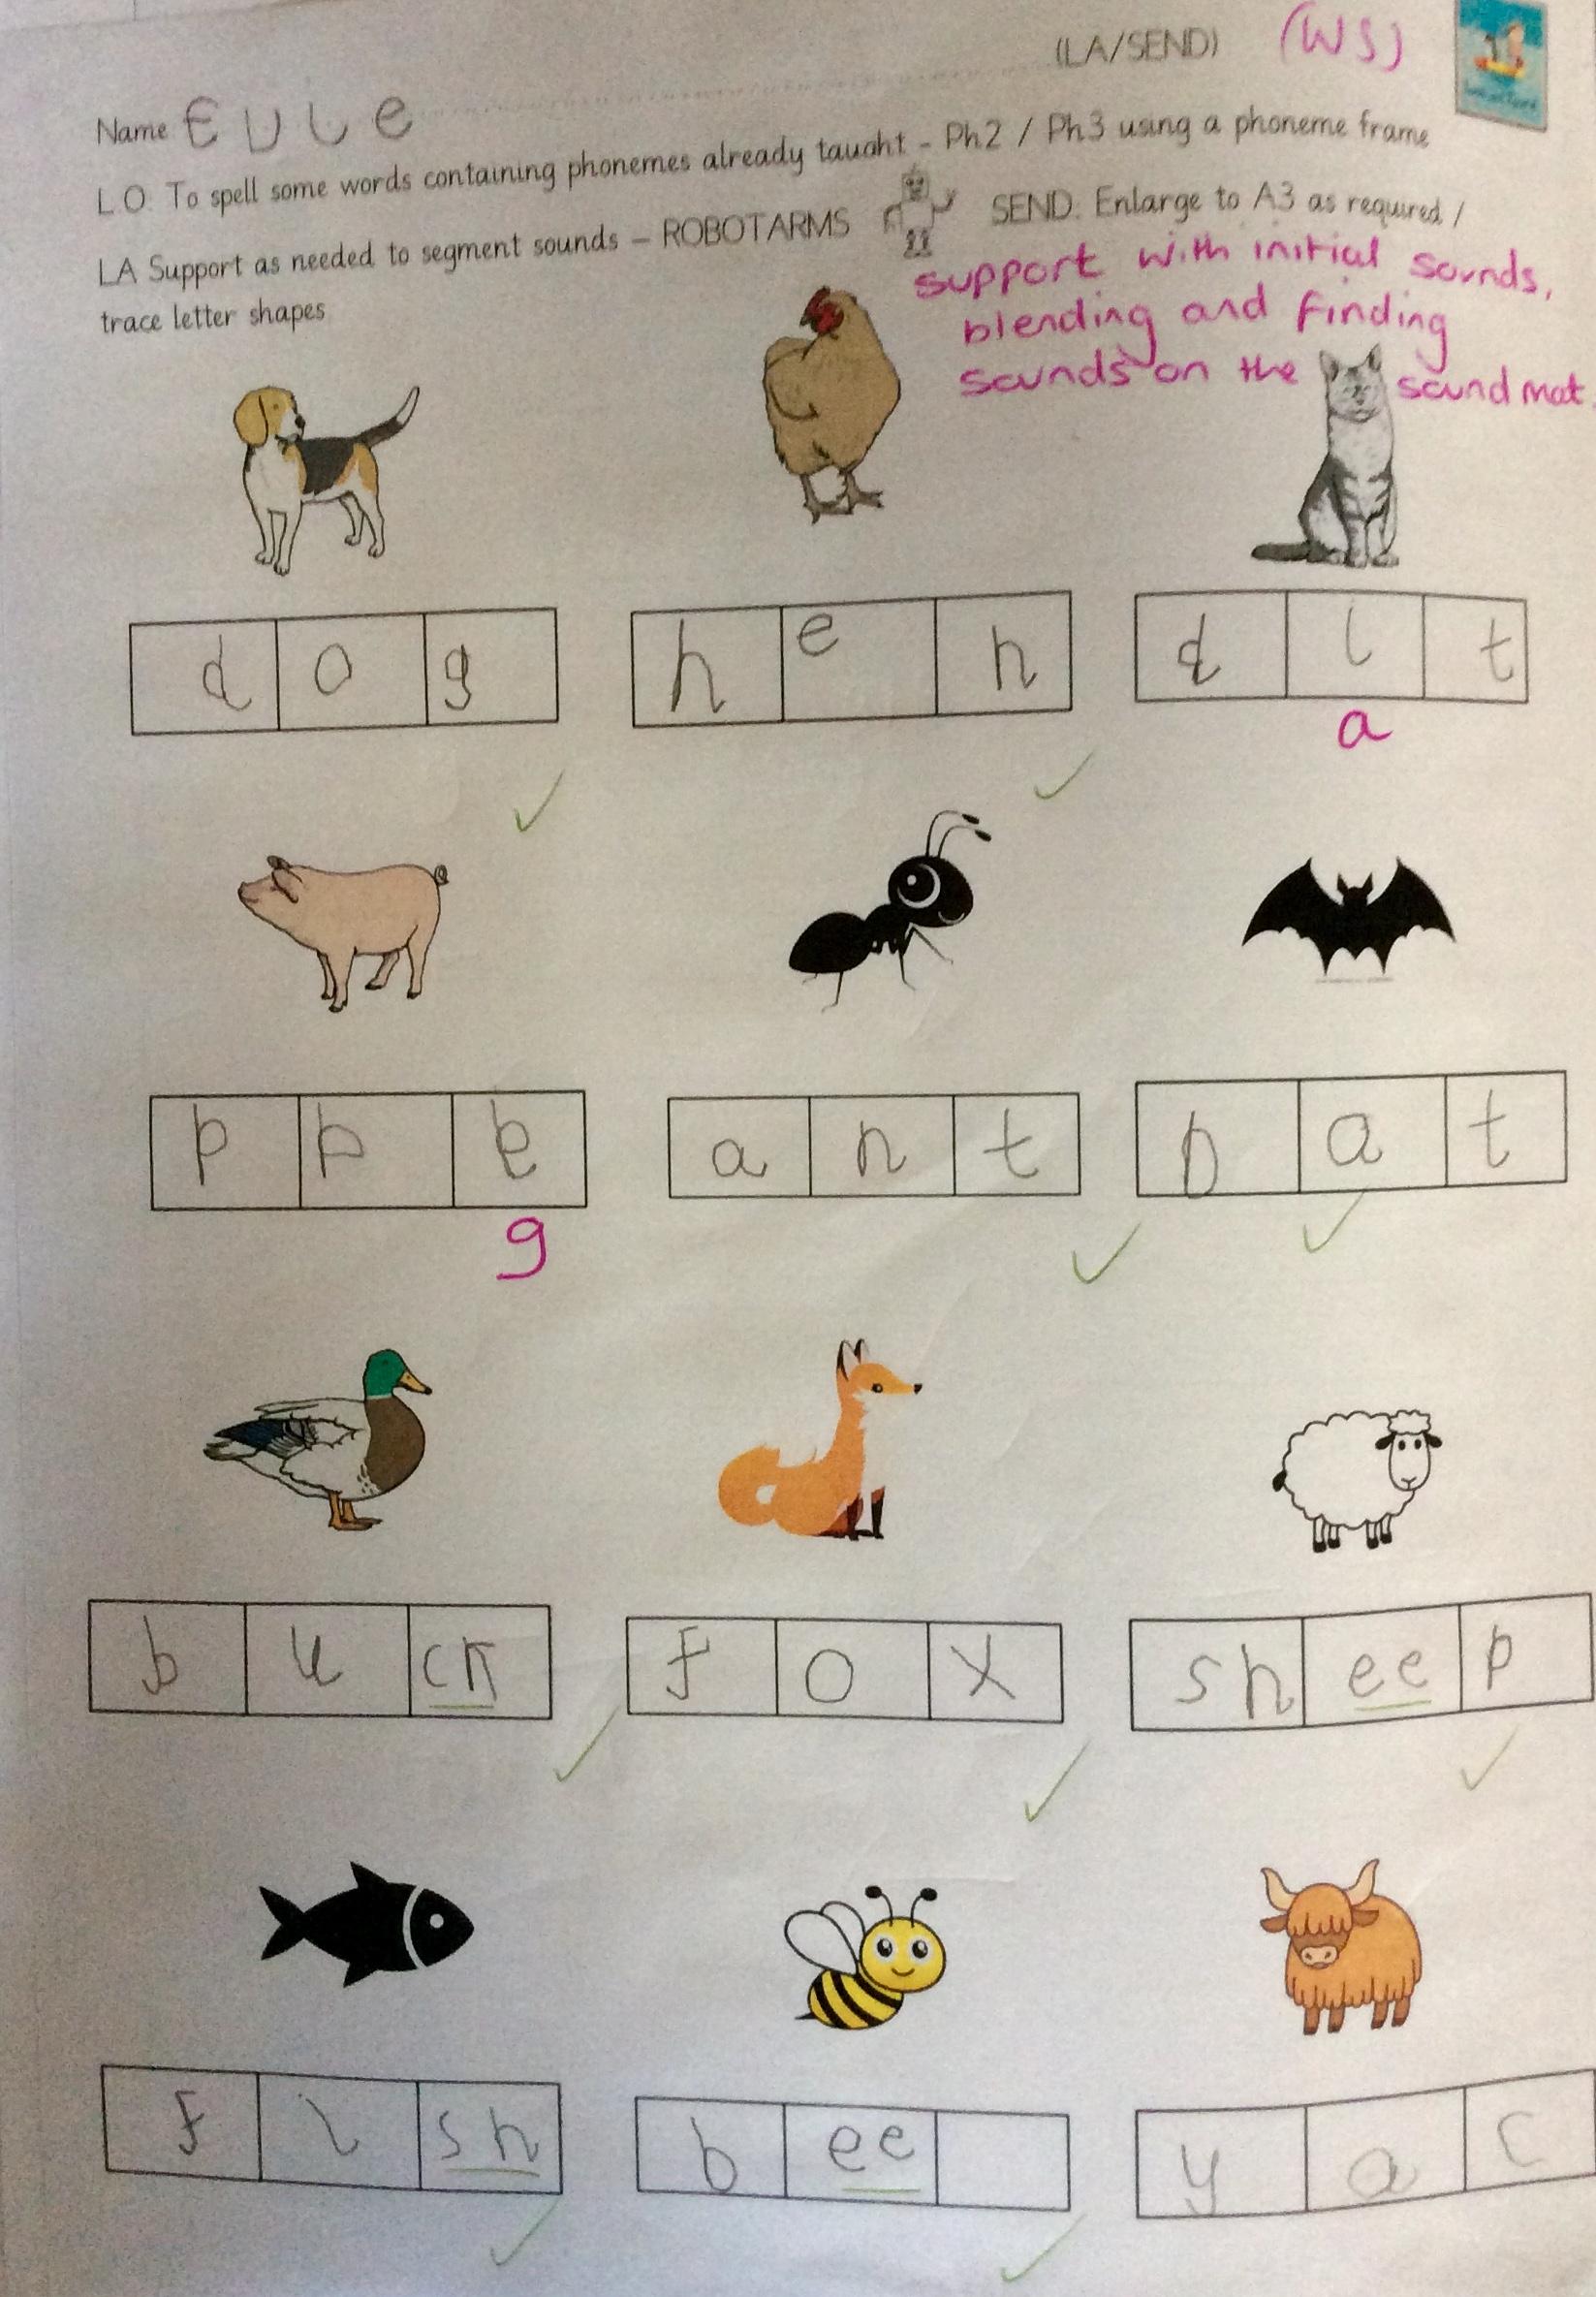 (LA/SEND) (WS)
Name Eule
L.O. To spell some words containing phonemes already taught - Ph2 / Ph3 using a phoneme frame
LA Support as needed to segment sounds – ROBOT ARMS SEND: Enlarge to A3 as required /
trace letter shapes
support with initial sounds,
blending and finding
sounds on the sound mat.
d o g h e n d i t
a
p p e a n t b a t
g
b u ck f o x sh ee p
f i sh b ee y a c